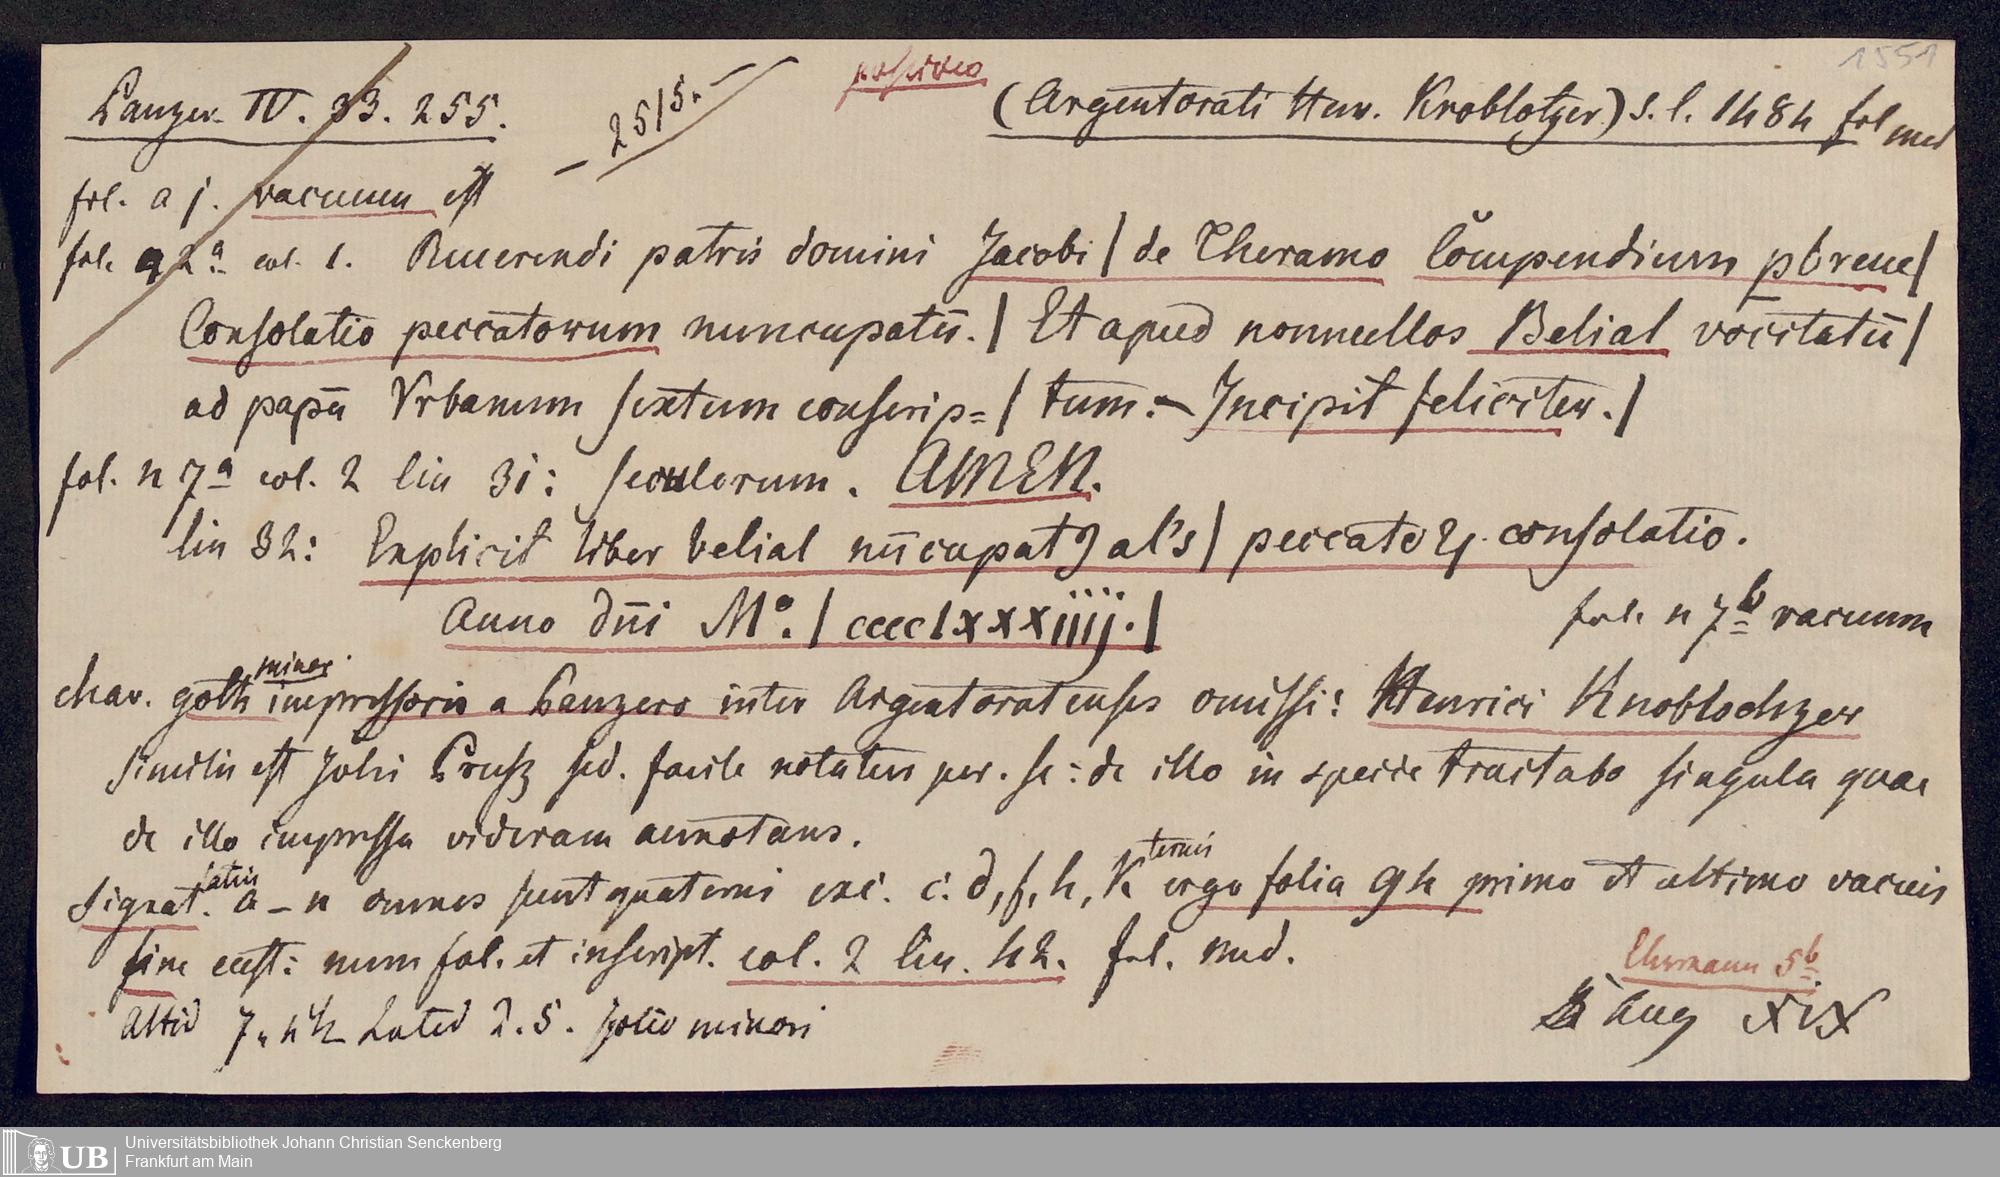 1551
Panzer IV. 33. 255.
– 2515. –
possideo
(Argentorati Henr. Knoblotzer) s. l. 1484 fol med
fol. a j. vacuum est
fol. a 2ª col. 1. Reuerendi patris domini Jacobi | de Theramo Cōmpendium pbreue |
Consolatio peccatorum nuncupatū. | Et apud nonnullos Belial vocitatū |
ad papā Vrbanum sextum conscrip= | tum.– Incipit feliciter. |
fol. n 7ª col. 2 lin 31: seculorum. AMEN.
lin 32: Explicit liber belial nūcupatꝰ al's | peccatoꝝ consolatio.
Anno dn̄i M°. | cccclxxxiiij. |
fol. n 7b vacuum
char. goth minor impressoris a Panzero inter Argentoratenses omissi: Henrici Knoblochzer
Similis est Johi Prusz sed. facile notatus per. se: de illo in specie tractabo singula quae
de illo impressa videram annotans.
Signat. latin a – n omnes sunt quaterni exc. c. d, f, h, K ternis ergo folia 94 primo et ultimo vacuis
sine cust: num fol. et inscript. col. 2 lin. 42. fol. med.
Altid 7" 4''' Latid 2. 5. folio minori
Ehrmann 5b.
Aug XIX
UB
Universitätsbibliothek Johann Christian Senckenberg
Frankfurt am Main